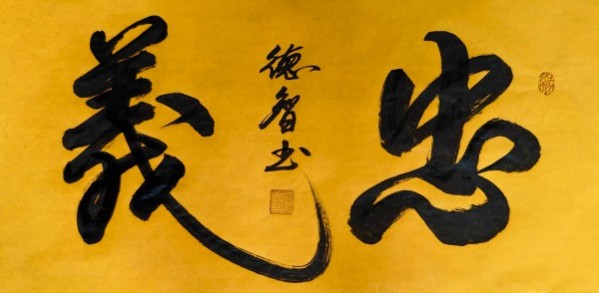 忠義
德智书